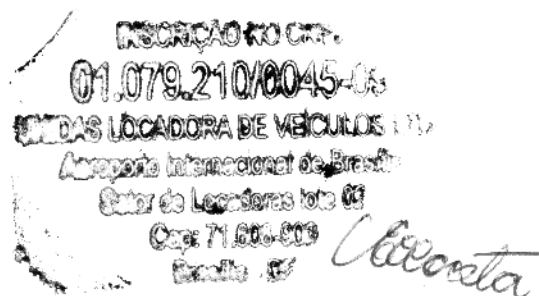 INSCRIÇÃO NO
01.079.210/0045-
UNIDAS LOCADORA DE VEÍCULOS
Aeroporto Internacional de Brasília
Setor de Locadoras lote
Cep: 71.
Brasília